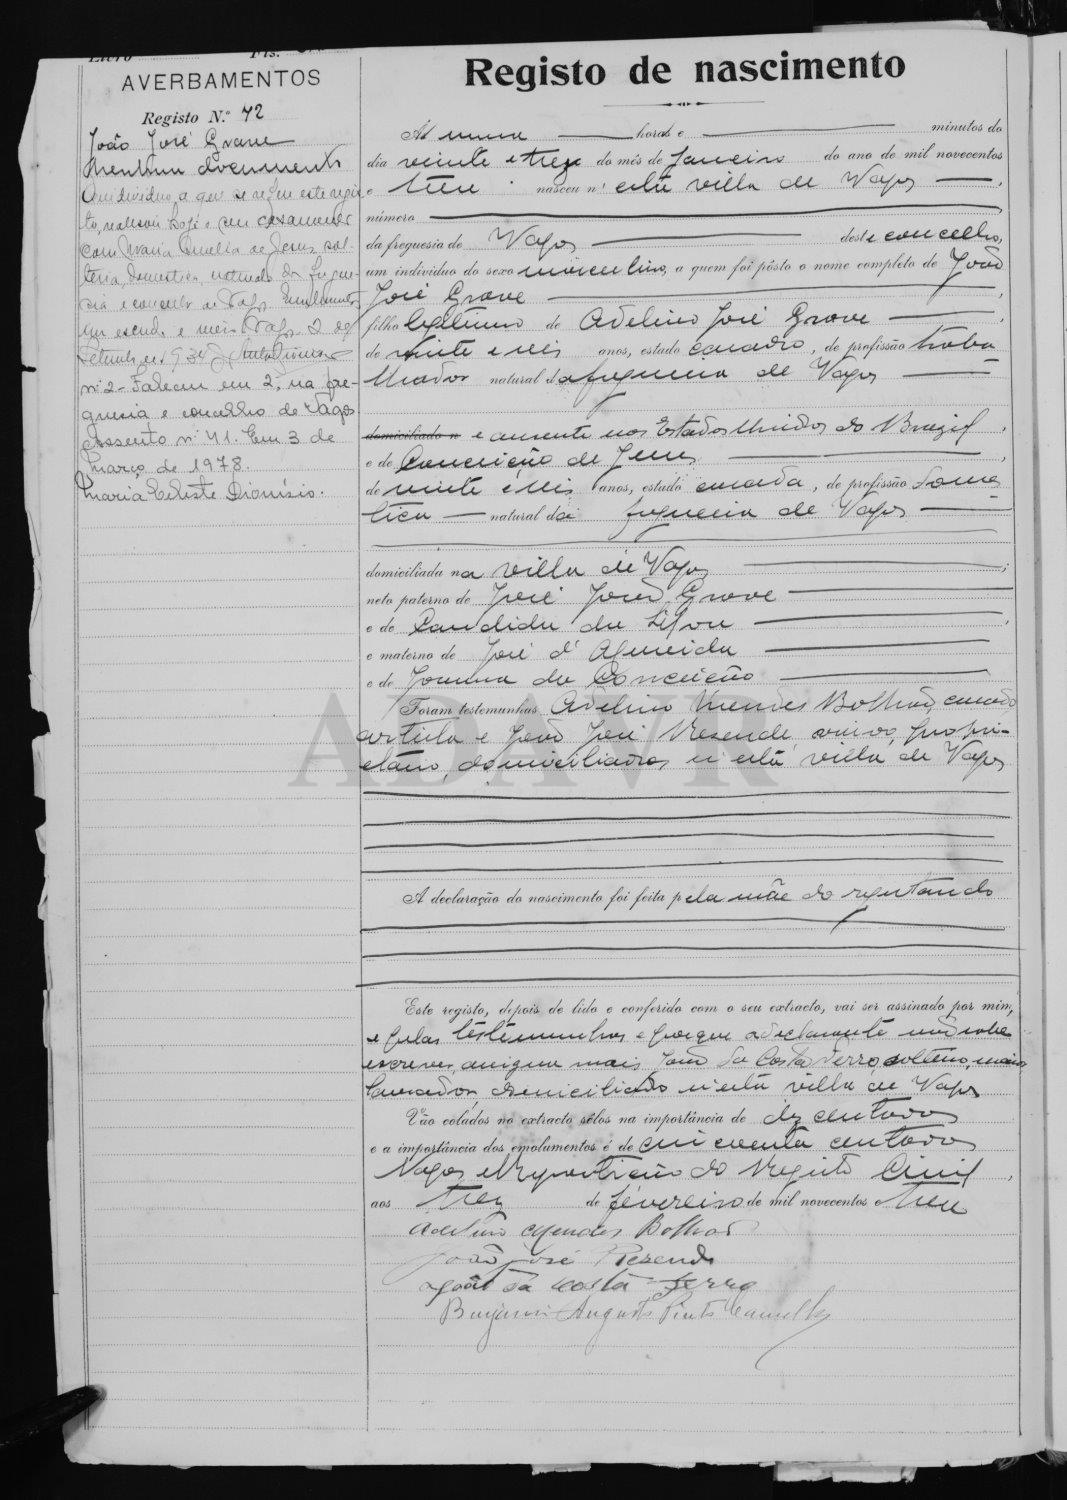 Livro Fls.
AVERBAMENTOS
Registo N.º 42
João José Grave
Nenhum documento
O individuo a que se refere este regis-
to, realisou hoje o seu casamento
com Maria Amelia de Jesus, sol-
teira, domestica, natural da fregue-
sia e concelho de Vagos. Emolumentos
um escudo e meio. Vagos, 2 de
de 1934
nº 2 - Faleceu em 2, na fre-
guesia e concelho de Vagos
Assento nº 41. Em 3 de
Março de 1978.
Maria Celeste Dionísio.
Registo de nascimento
Ás uma horas e minutos do
dia vinte e trez do mês de Janeiro do ano de mil novecentos
e treze nasceu n'esta villa de Vagos
número
da freguesia de Vagos deste concelho,
um individuo do sexo masculino, a quem foi pôsto o nome completo de João
José Grave
filho legitimo de Adelino José Grave
de vinte e seis anos, estado casado, de profissão traba-
lhador natural da freguesia de Vagos
domiciliado n e ausente nos Estados Unidos do Brazil
e de Conceição de Jesus
de vinte e seis anos, estado casada, de profissão domes-
tica natural da freguesia de Vagos
domiciliada na villa de Vagos
neto paterno de José João Grave
e de Candida da Silva
e materno de José d'Almeida
e de Joanna da Conceição
Foram testemunhas Adelino Mendes Bolhão, casado
artista e João José Resende, viuvo, propri-
etario, domiciliados n'esta villa de Vagos
ADAVR
A declaração do nascimento foi feita pela mãe do registando
Este registo, depois de lido e conferido com o seu extracto, vai ser assinado por mim,
e pelas testemunhas e porque a declarante não sabe
escrever, assigna mais João da Costa Ferro, solteiro, maior,
lavrador, domiciliado n'esta villa de Vagos
Vão colados no extracto sêlos na importância de dez centavos
e a importância dos emolumentos é de cincoenta centavos
Vagos e Repartição do Registo Civil
aos trez de fevereiro de mil novecentos e treze
Adelino Mendes Bolhão
João José Rezende
João da Costa Ferro
Benjamin Augusto Pinto Camelo